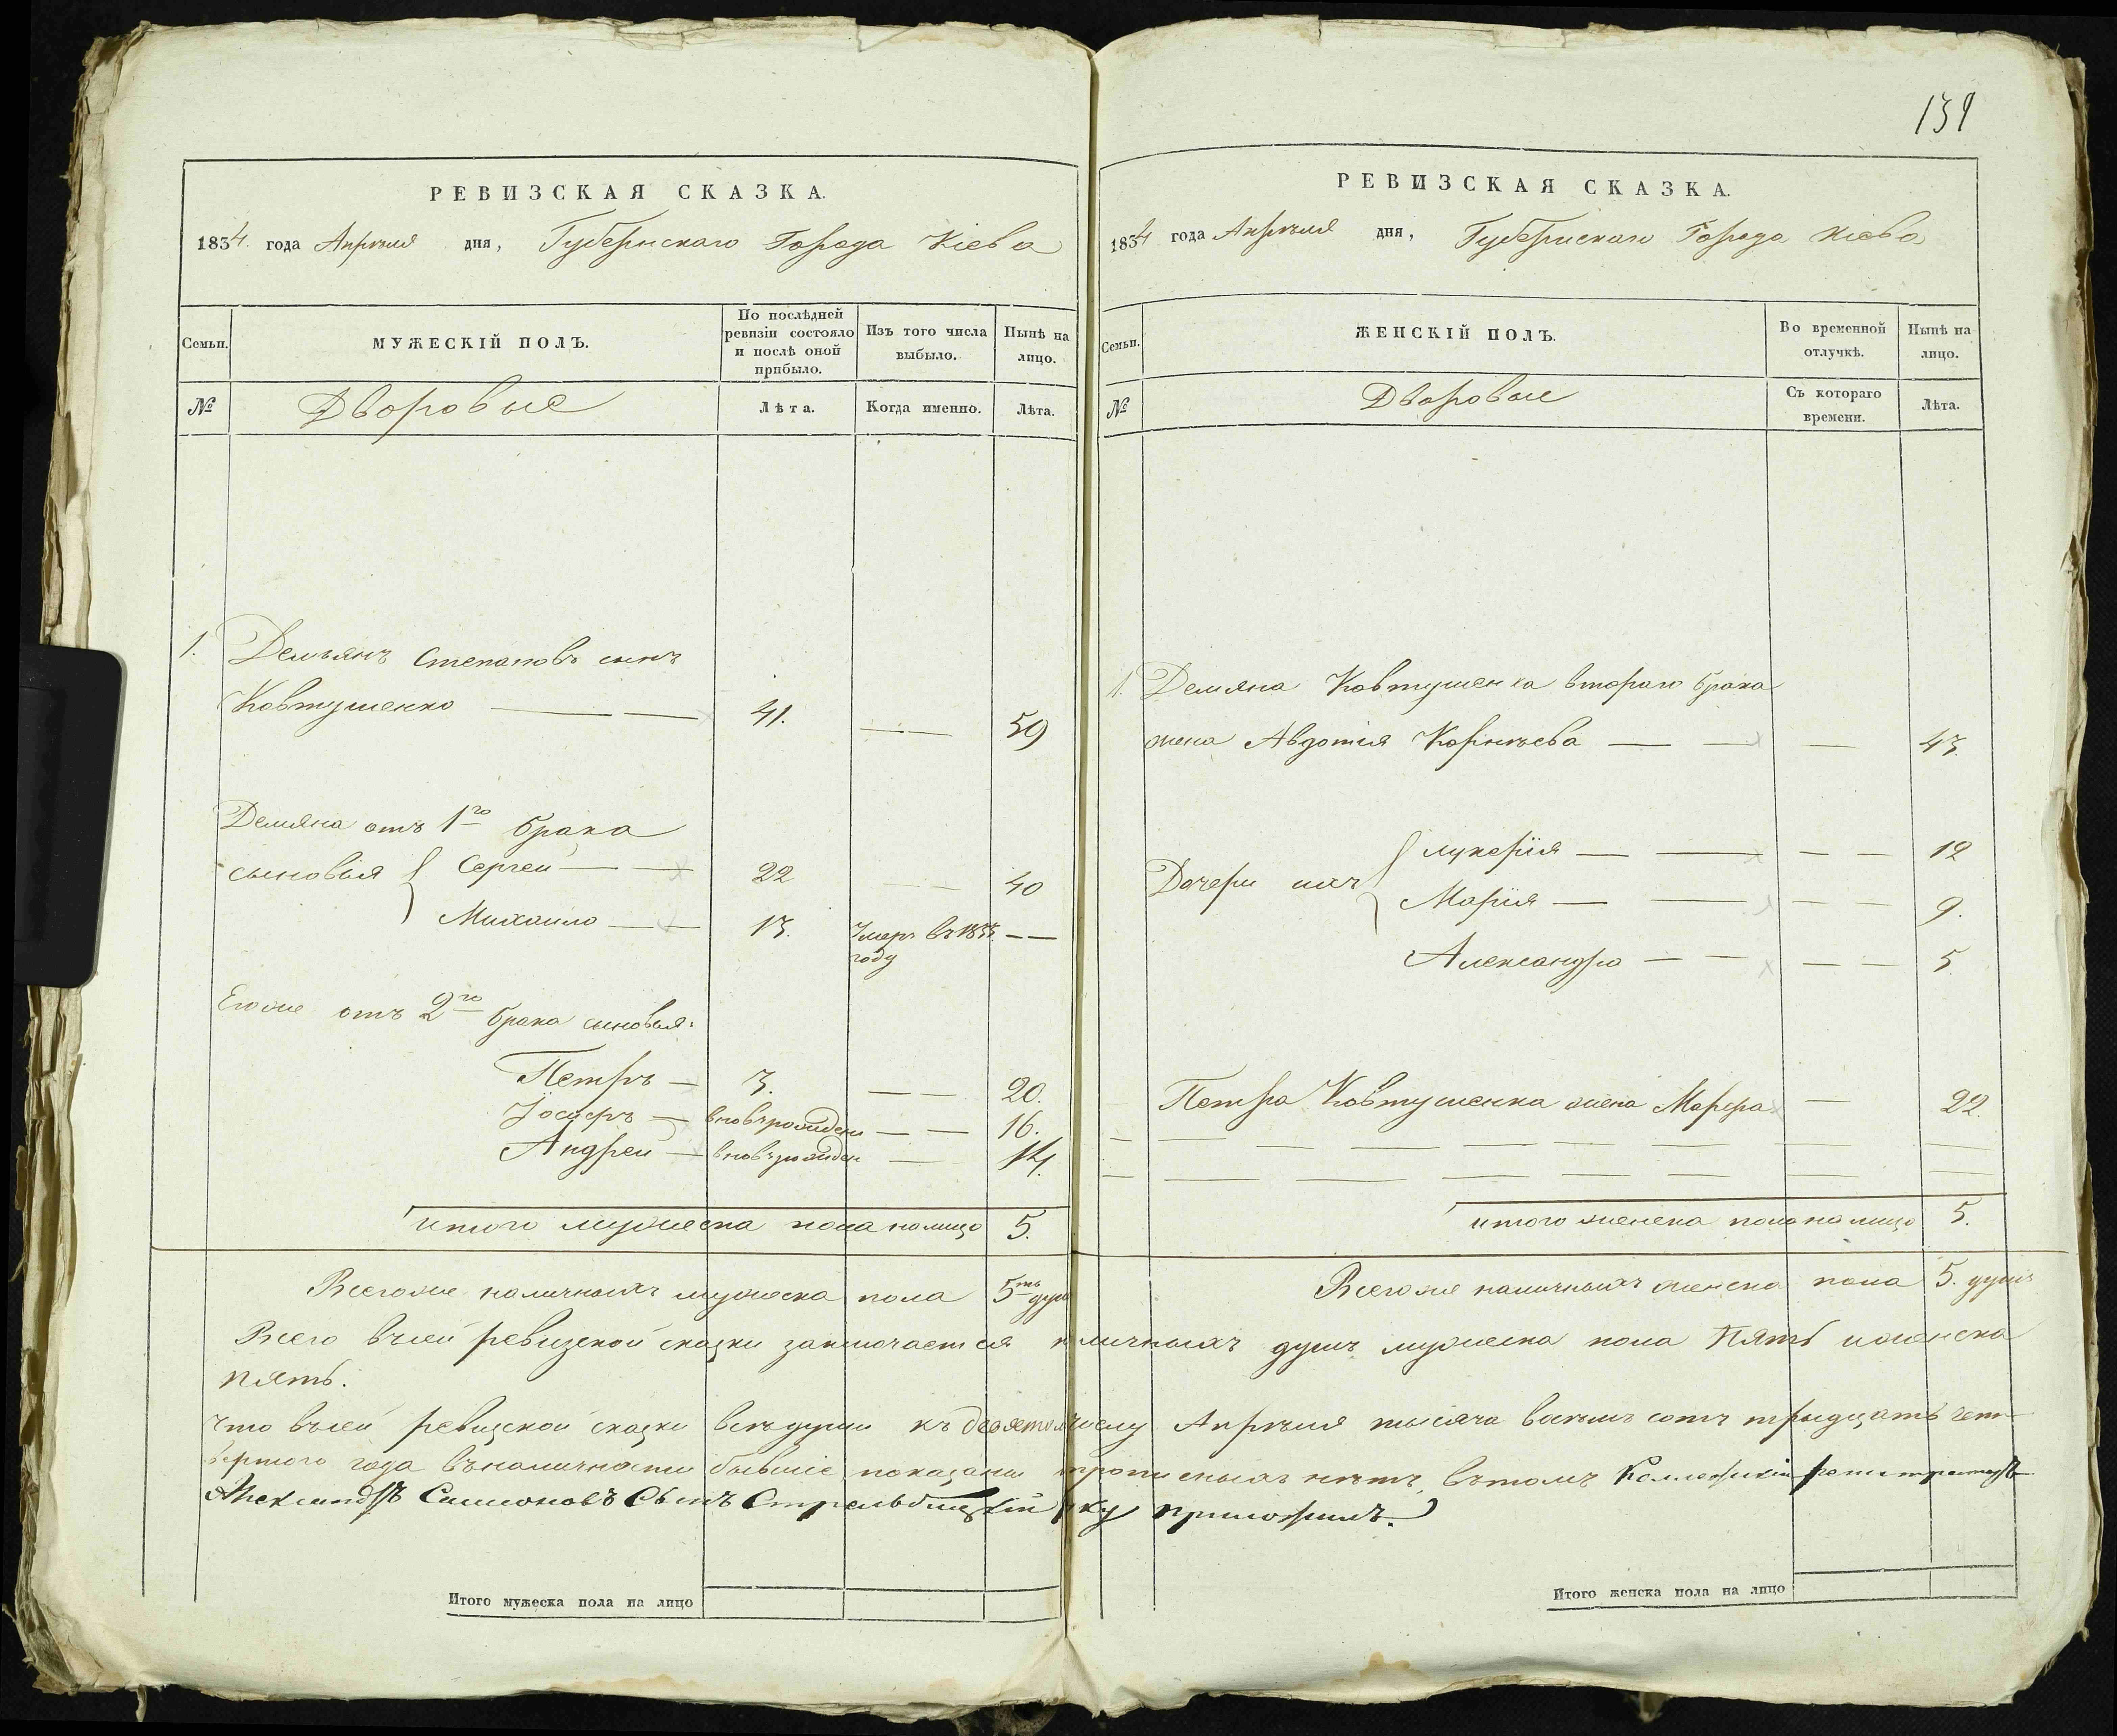 139
РЕВИЗСКАЯ СКАЗКА.
1834. года Апрѣля дня, Губернскаго Города Кіева
Семьи.
МУЖЕСКІЙ ПОЛЪ.
По послѣдней ревизіи состояло и послѣ оной прибыло.
Изъ того числа выбыло.
Нынѣ на лицо.
№
Дворовые
Лѣта.
Когда именно.
Лѣта.
1. Демьянъ Степановъ сынъ
Ковтушенко — — 41. — — 59
Демяна отъ 1го брака
сыновья { Сергей — — 22 — — 40
Михаило — — 13. Умеръ въ 1833 — —
году
Егоже отъ 2го брака сыновья:
Петръ — 3. — — 20.
Іосифъ — вновьрожденъ — — 16.
Андрей — вновьрожден — 14.
итого мужеска пола налицо 5.
Всегоже наличныхъ мужеска пола 5ть душ
РЕВИЗСКАЯ СКАЗКА.
1834 года Апрѣля дня, Губернскаго Города Кіева
Семьи.
ЖЕНСКІЙ ПОЛЪ.
Во временной отлучкѣ.
Нынѣ на лицо.
№
Дворовые
Съ котораго времени.
Лѣта.
1. Демяна Ковтушенка втораго брака
жена Авдотія Корнѣева — — — 43.
Дочери ихъ { Лукерія — — — — 12
Марія — — — — 9.
Александра — — — — 5
Петра Ковтушенка жена Марфа — 22.
итого женска пола налицо 5.
Всегоже наличныхъ женска пола 5. душъ
Всего въсей ревизской сказки заключается наличныхъ душъ мужеска пола Пять иженска
пять.
Что въсей ревизской сказки всѣ души къ девятому числу Апрѣля тысяча восемь сотъ тридцать чет-
вертого года въналичности бывшіе показаны прописныхъ нѣтъ, вътомъ Колежскій регистраторъ
Александръ Самоновъ Сынъ Стрельбицкій руку приложилъ.
Итого мужеска пола на лицо
Итого женска пола на лицо